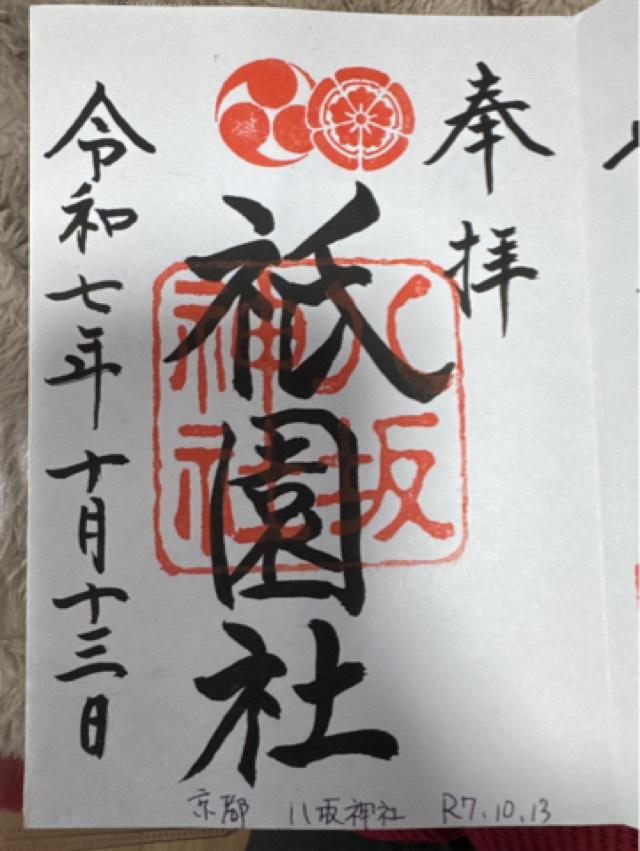 奉拝
祇園社
八坂神社
令和七年十月十三日
京都 八坂神社 R7.10.13